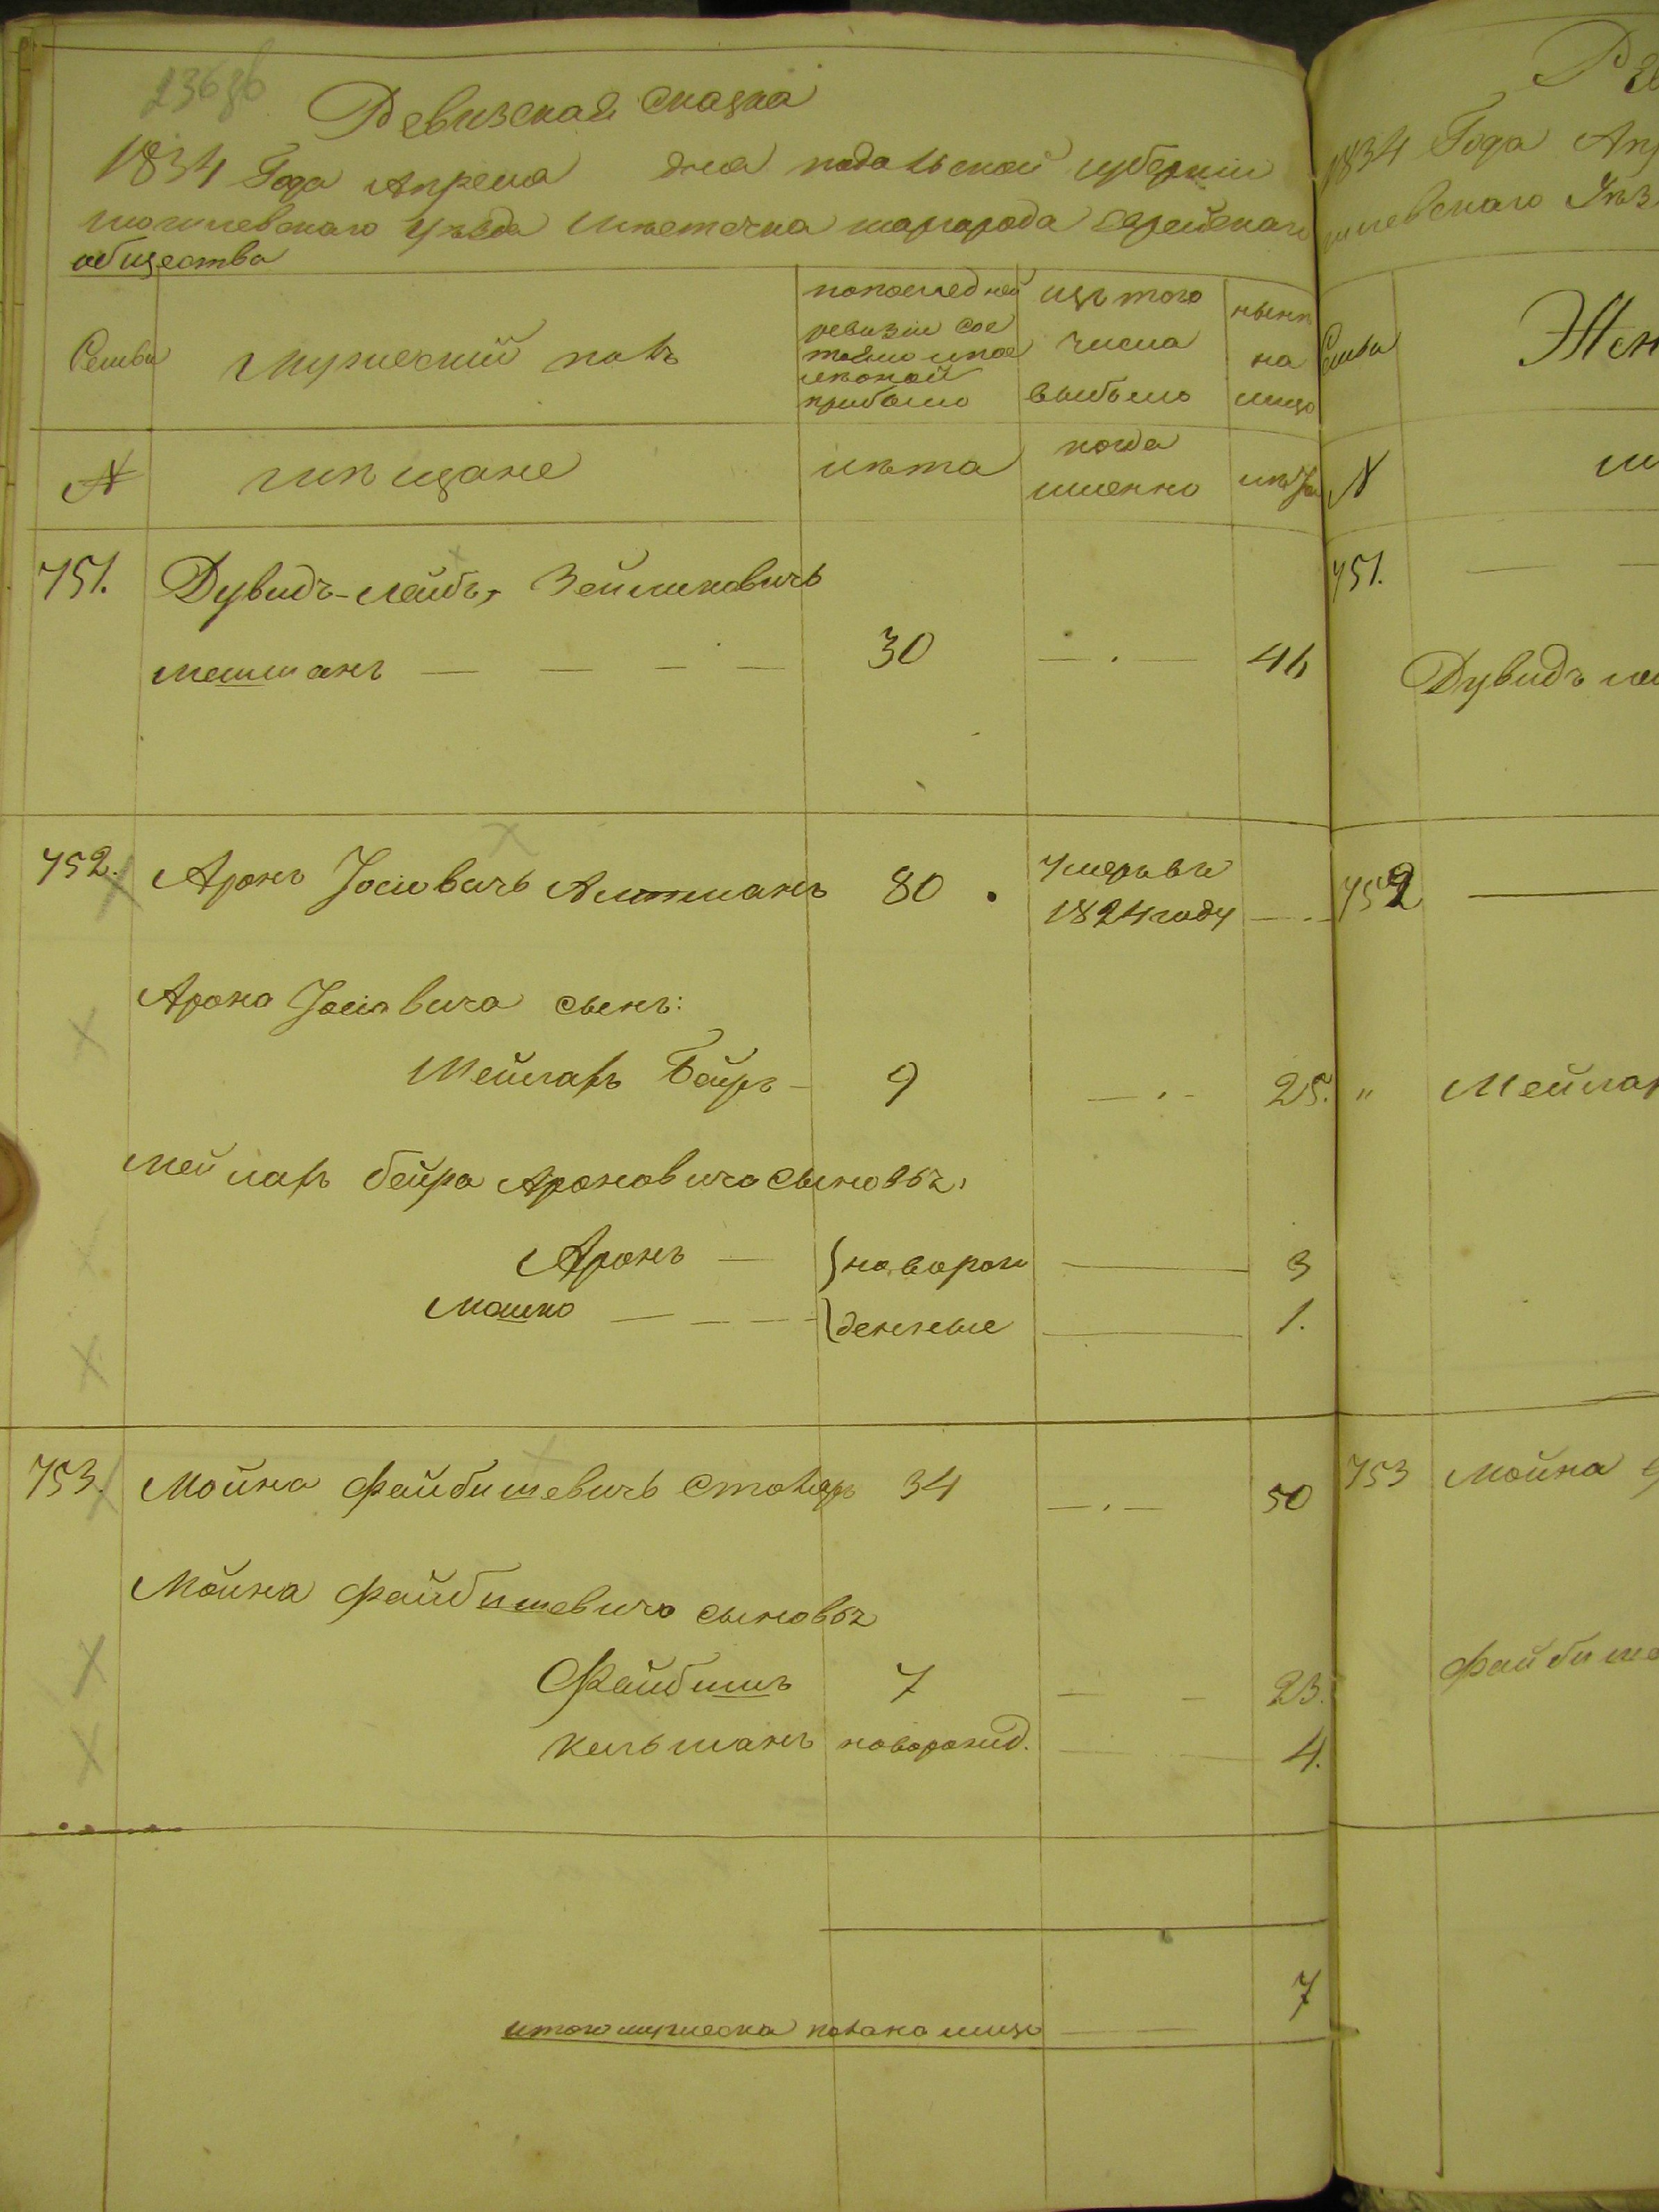 236
Ревизская сказка
1834 Года Апреля дня подольской губернiи
могилевскаго уѣзда мѣстечка шаргорода Еврейскаго
общества
Семьи
мужеский полъ
попоследней ревизiи состояло и после оной прибыло
изъ того числа выбыло
нынѣ на лицо
N
мѣщане
лѣта
когда именно
лѣта
751. Дувидъ-лейбъ, Зейликовичъ
30 46
752. Аронъ Iосiовичъ Алтманъ 80 Умеръ въ 1824 году
Арона Iосiовича сынъ:
Мейларъ Бейръ 9 25.
Мейларъ бейра Ароновича сыновья,
Аронъ новорож 3
Мошко денные 1.
753. Мойна Файбишевичъ Столяръ 34 50
Мойна Файбишевича сыновья
Файбишъ 7 23.
Кельманъ новорожд. 4.
7
итого мужеска пола на лицо
Ре
1834 Года Апр
гилевскаго Уѣз
Семьи
Жен
N
м
751.
Дувидъ ле
752
" Мейлар
753 Мойна
Файбише